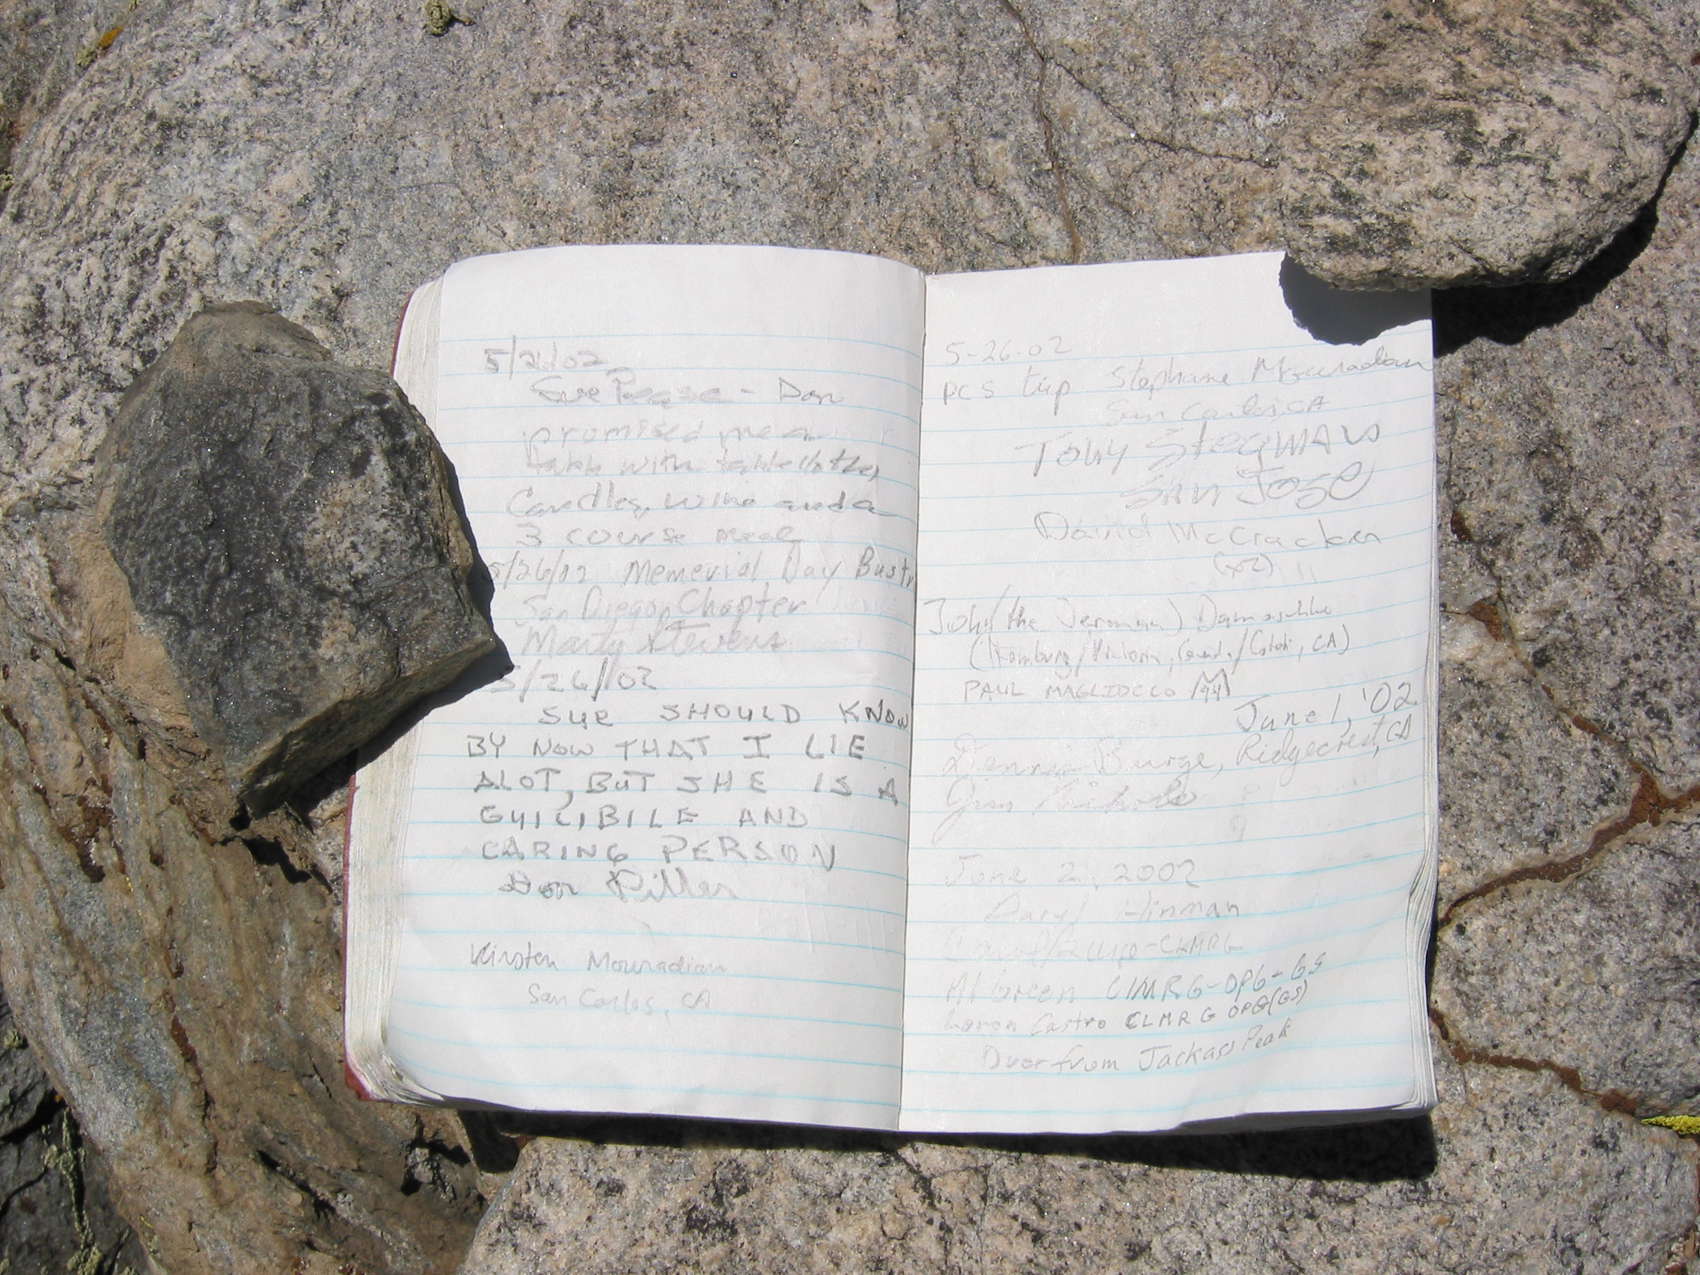 5/26/02
Sue Pease - Don
promised me a
table with tablecloths,
Candles, wine and a
3 course meal
5/26/02 Memerial Day Bust
San Diegan Chapter
Marty Stevens
5/26/02
SUE SHOULD KNOW
BY NOW THAT I LIE
ALOT, BUT SHE IS A
GUILIBILE AND
CARING PERSON
Don
Kirsten Mouradian
San Carlos, CA
5-26-02
PCS trip Stephanie Mouradian
San Carlos, CA
TONY
SAN JOSE
David McCracken
John (the German)
CA)
PAUL MAGLIOCCO
June 1, '02
Dennis Burge, Ridgecrest, CA
Jim Nichols
June 2, 2002
Daryl Hinman
CLMRG
Al Green CLMRG-DPG-GS
Loren Castro CLMRG DPG(GS)
Over from Jackass Peak